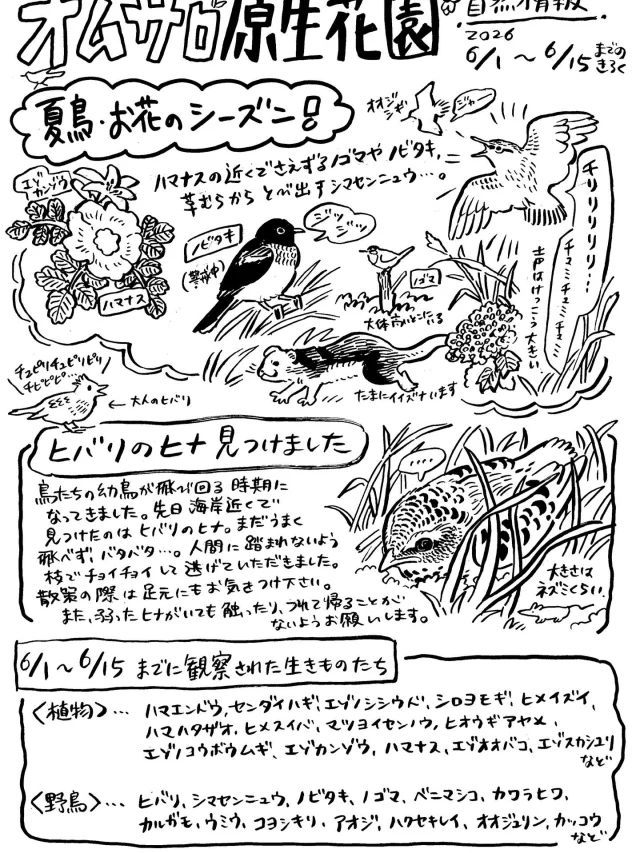 オムサロ原生花園
自然情報
2026
6/1～6/15までの
きろく
夏鳥・お花のシーズン!
オオジシギ
ジャ
エゾカンゾウ
ハマナスの近くでさえずるノゴマやノビタキ、
草むらからとび出すシマセンニュウ…。
ノビタキ
(警戒中)
ジッジッ
ノゴマ
大体高いとこにいる
チリリリリリ…
チュミチュミチュミ
声はけっこう大きい
ハマナス
たまにイイズナいます
チュピリチュピリピリ
チピピピ…
←大人のヒバリ
ヒバリのヒナ見つけました
鳥たちの幼鳥が飛び回る時期に
なってきました。先日海岸近くで
見つけたのはヒバリのヒナ。まだうまく
飛べず、バタバタ…。人間に踏まれないよう
枝でチョイチョイして逃げていただきました。
散策の際は足元にもお気をつけ下さい。
また、弱ったヒナがいても触ったり、つれて帰ることが
ないようお願いします。
大きさは
ネズミくらい。
6/1～6/15までに観察された生きものたち
〈植物〉… ハマエンドウ、センダイハギ、エゾノシシウド、シロヨモギ、ヒメイズイ、
ハマハタザオ、ヒメスイバ、マツヨイセンノウ、ヒオウギアヤメ、
エゾノコウボウムギ、エゾカンゾウ、ハマナス、エゾオオバコ、エゾスカシユリ
など
〈野鳥〉… ヒバリ、シマセンニュウ、ノビタキ、ノゴマ、ベニマシコ、カワラヒワ、
カルガモ、ウミウ、コヨシキリ、アオジ、ハクセキレイ、オオジュリン、カッコウ
など